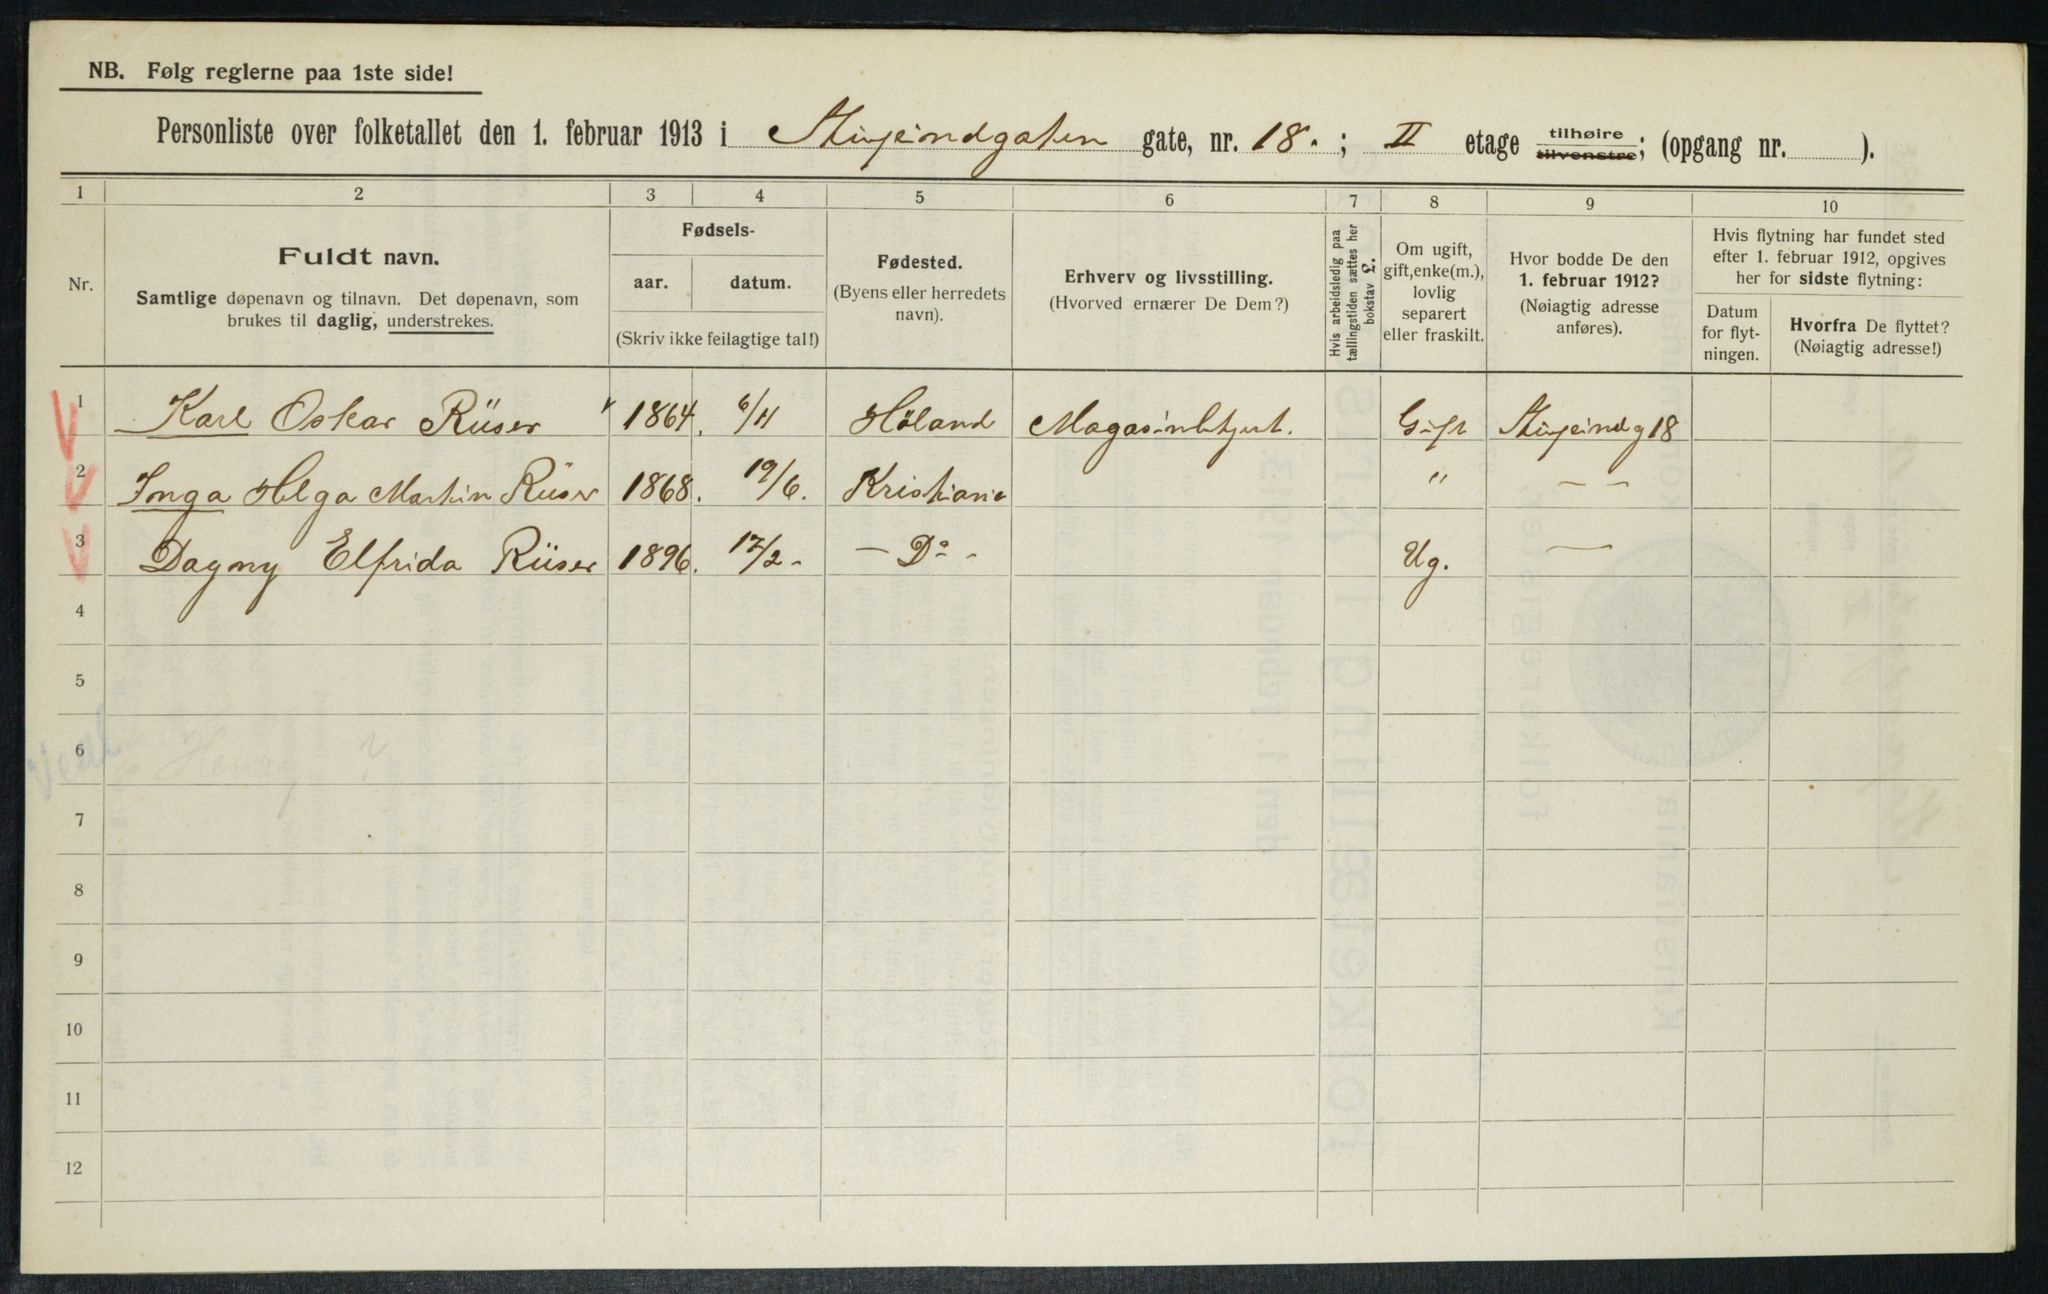 NB. Følg reglerne paa 1ste side!
Personliste over folketallet den 1. februar 1913 i gate, nr. 18. ; II etage tilhøire tilvenstre; (opgang nr. ).
1 2 3 4 5 6 7 8 9 10
Nr.
Fuldt navn.
Samtlige døpenavn og tilnavn. Det døpenavn, som
brukes til daglig, understrekes.
Fødsels-
aar. datum.
(Skriv ikke feilagtige tal!)
Fødested.
(Byens eller herredets
navn).
Erhverv og livsstilling.
(Hvorved ernærer De Dem?)
Hvis arbeidsledig paa
tællingstiden sættes her
bokstav £.
Om ugift,
gift, enke(m.),
lovlig
separert
eller fraskilt.
Hvor bodde De den
1. februar 1912?
(Nøiagtig adresse
anføres).
Hvis flytning har fundet sted
efter 1. februar 1912, opgives
her for sidste flytning:
Datum
for flyt-
ningen.
Hvorfra De flyttet?
(Nøiagtig adresse!)
1 Karl Oskar Rüser 1864. 6/11 Höland Gift 18
2 Inga Helga Martin Rüser 1868. 19/6. Kristiania " — —
3 Dagny Elfrida Rüser 1896. 17/2 - — Do - Ug. —
4
5
6
7
8
9
10
11
12